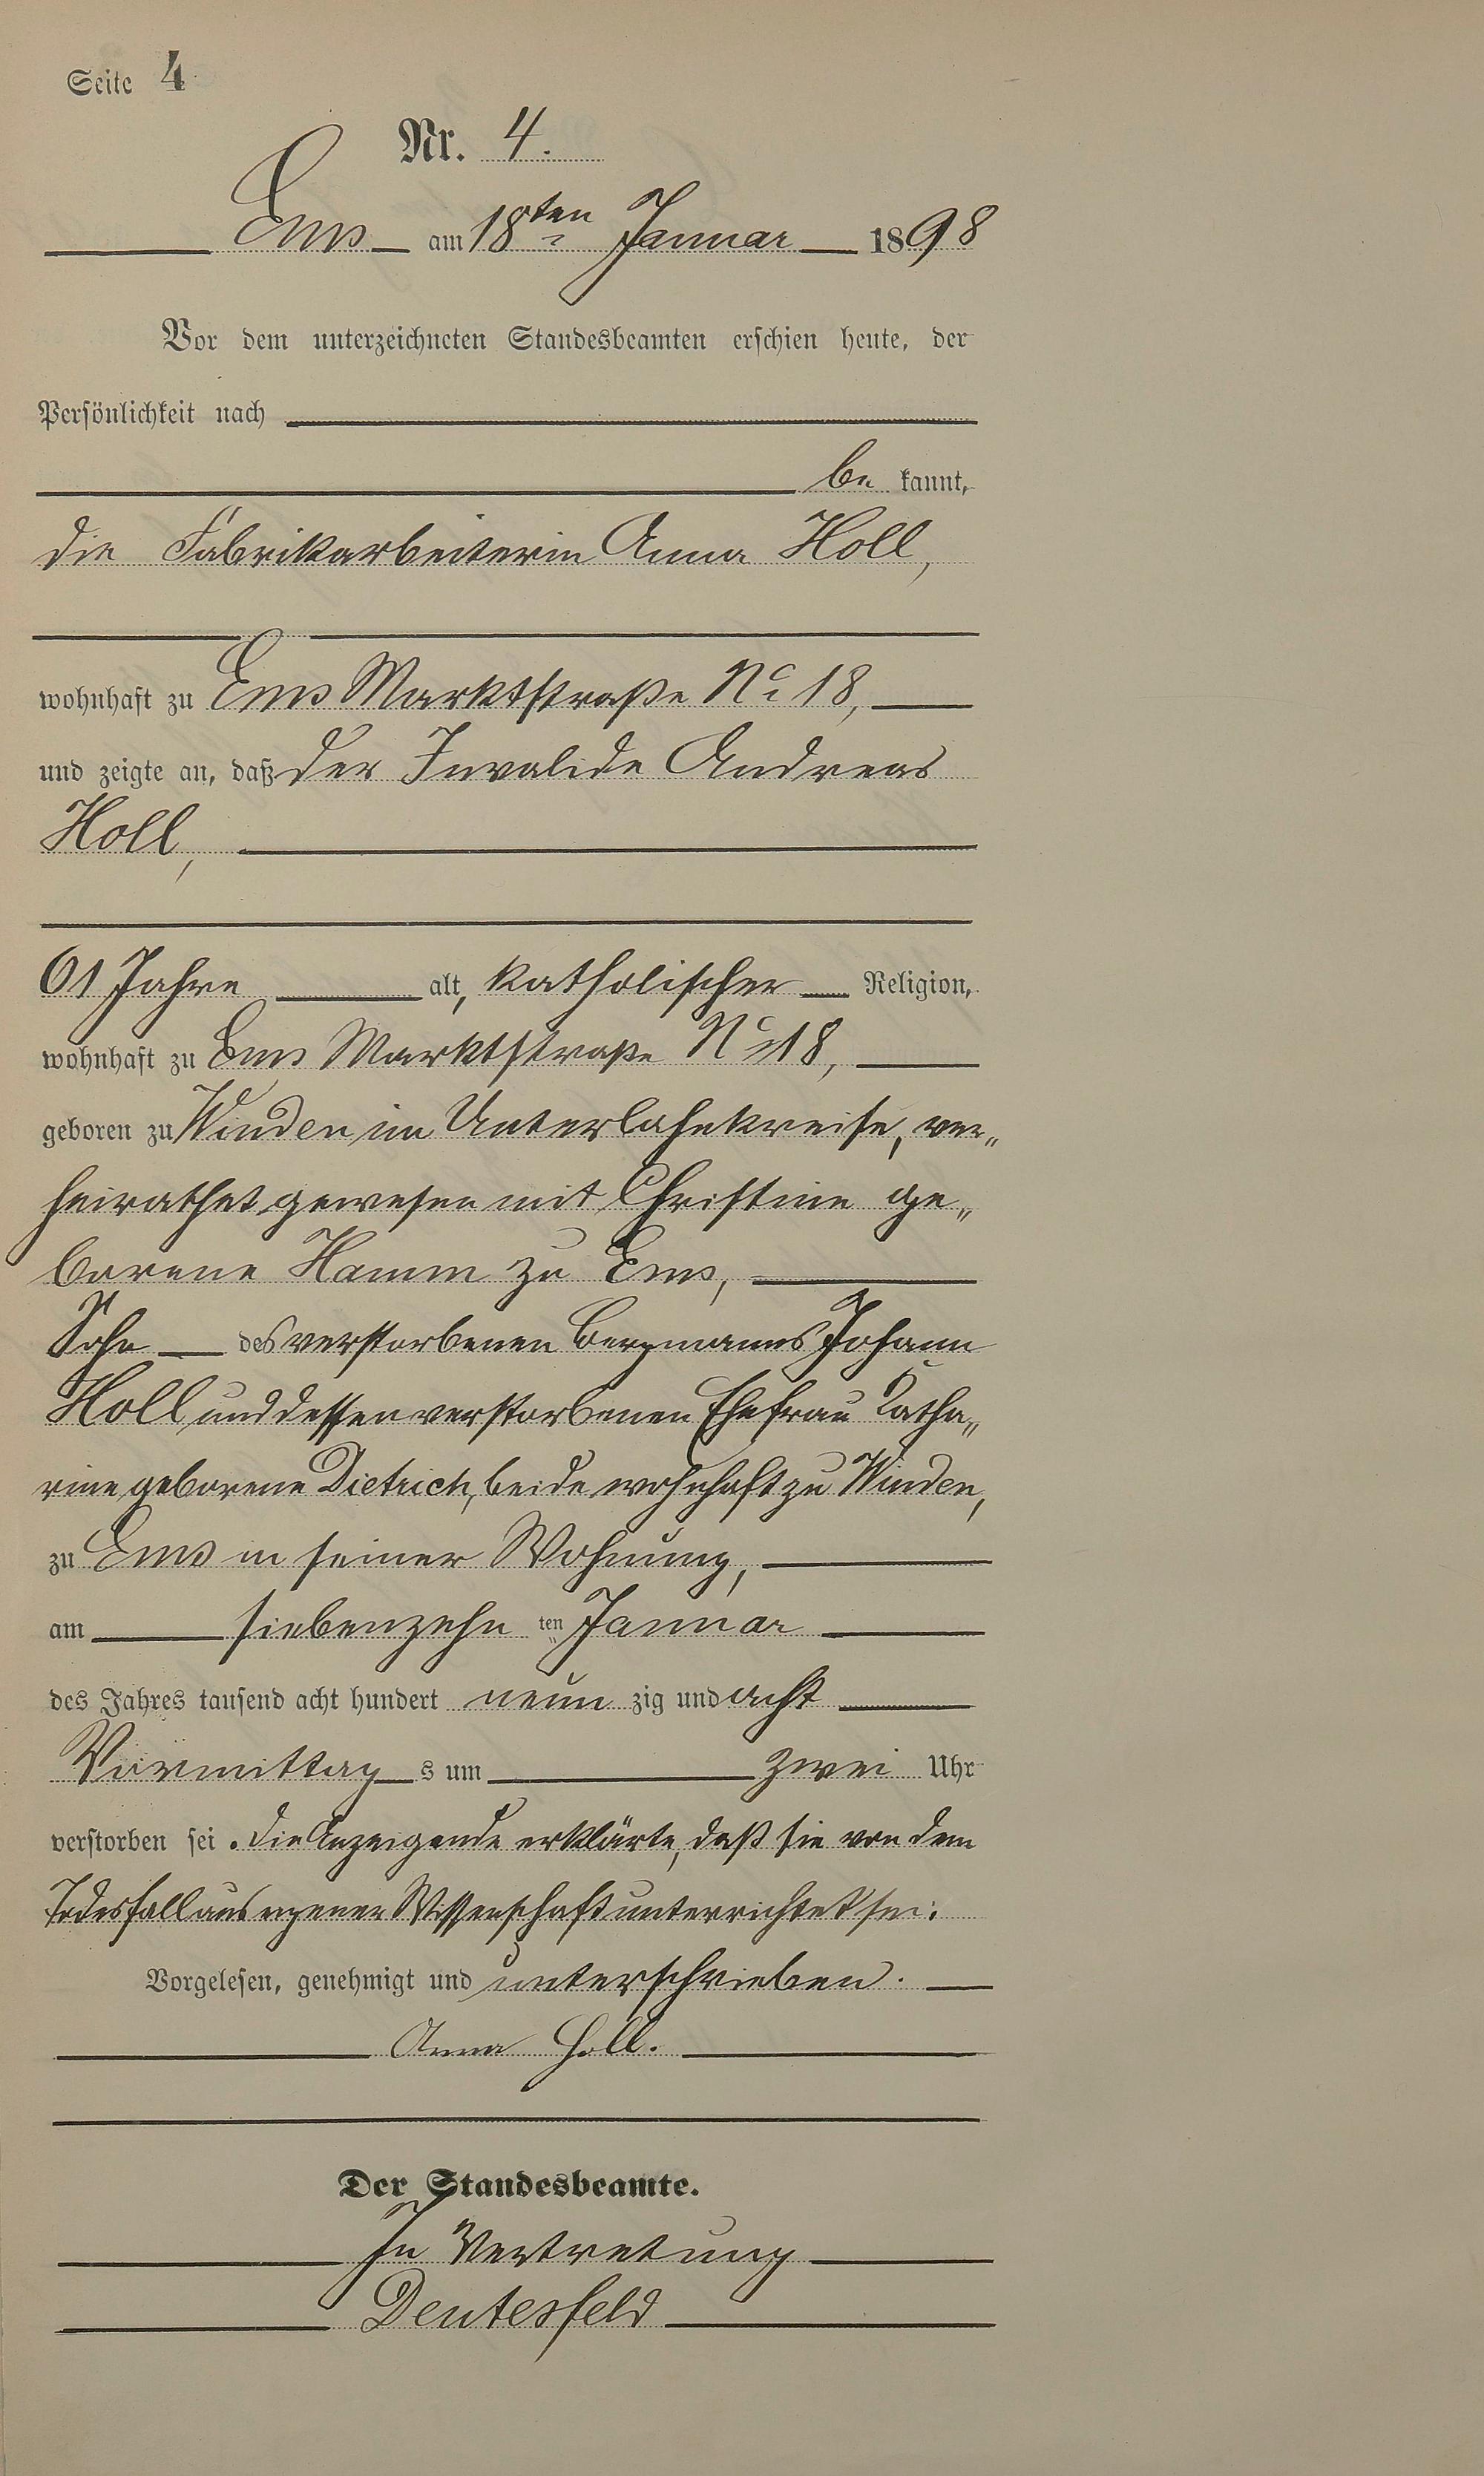 Seite 4
Nr. 4.
Ems am 18ten Januar 1898
Vor dem unterzeichneten Standesbeamten erschien heute, der
Persönlichkeit nach
be kannt,
die Fabrikarbeiterin Anna Holl,
wohnhaft zu Ems Marktstraße No 18,
und zeigte an, daß der Invalide Andreas
Holl,
61 Jahre alt, katholischer Religion,
wohnhaft zu Ems Marktstraße No 18,
geboren zu Winden im Unterlahnkreise, ver„
heirathet gewesen mit Christine ge„
borene Hamm zu Ems,
Sohn des verstorbenen Bergmanns Johann
Holl und dessen verstorbenen Ehefrau Catha„
rine geborene Dietrich, beide wohnhaft zu Winden,
zu Ems in seiner Wohnung,
am siebenzehn ten Januar
des Jahres tausend acht hundert neun zig und acht
Vormittag s um zwei Uhr
verstorben sei. Die Anzeigende erklärte, daß sie von dem
Todesfall aus eigener Wissenschaft unterrichtet sei.
Vorgelesen, genehmigt und unterschrieben.
Anna Holl.
Der Standesbeamte.
In Vertretung
Deutesfeld